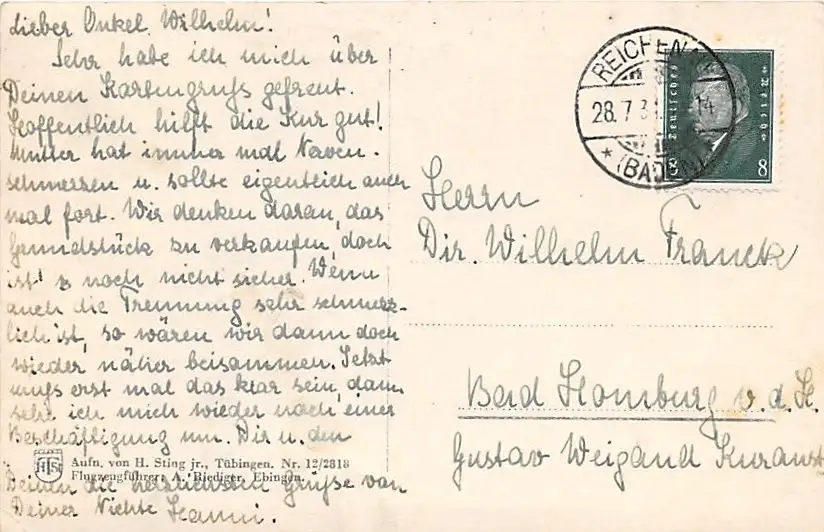 Lieber Onkel Wilhelm!
Sehr habe ich mich über
Deinen Kartengruß gefreut.
Hoffentlich hilft die Kur gut!
Mutter hat immer mal Nerven-
schmerzen u. sollte eigentlich auch
mal fort. Wir denken daran, das
Grundstück zu verkaufen, doch
ist's noch nicht sicher. Wenn
auch die Trennung sehr schmerz-
lich ist, so wären wir dann doch
wieder näher beisammen. Jetzt
muß erst mal das klar sein, dann
sehe ich mich wieder nach einer
Beschäftigung um. Dir u. den
Deinen die herzlichsten Grüße von
Deiner Nichte Hanni.
HS
Aufn. von H. Sting jr., Tübingen. Nr. 12/2818
Flugzeugführer: A. Riediger, Ebingen.
REICHENAU
28.7.31. 14
* (BADEN)
Deutsches Reich
8 8
Herrn
Dir. Wilhelm Franck
Bad Homburg v.d.H.
Gustav Weigand Kuranst